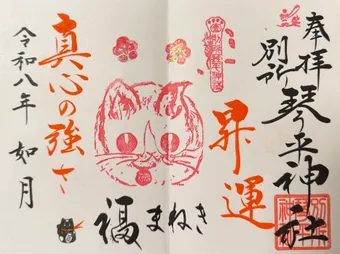 奉拝
別所
琴平神社
昇運
福まねき
真心の強さ
令和八年 如月